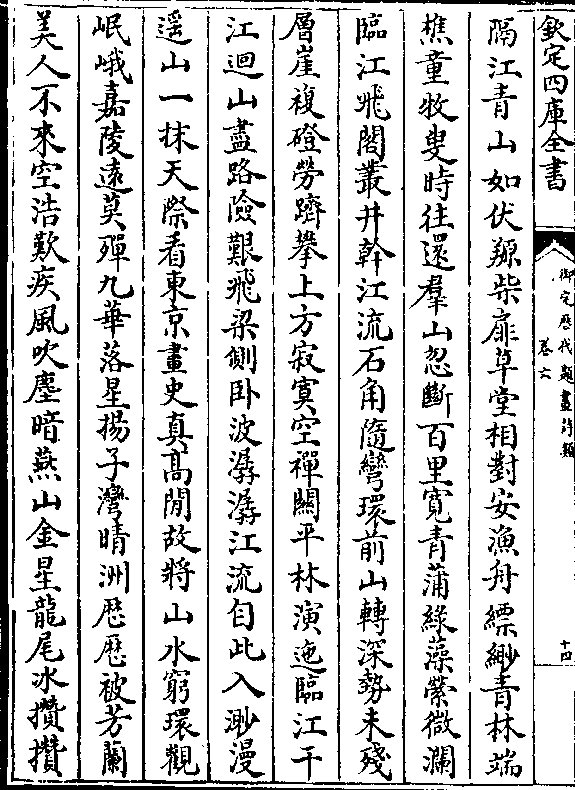 欽定四庫全書
御定歷代題畫詩類
卷六
十四
隔江青山如伏羱柴扉草堂相對安漁舟縹緲青林端
樵童牧叟時往還羣山忽斷百里寛青蒲緑藻縈微瀾
臨江飛閣叢井幹江流石角隨彎環前山轉深勢未殘
層崖複磴勞躋攀上方寂寞空禪關平林演迤臨江干
江迴山盡路險艱飛梁側卧波潺潺江流自此入渺漫
遥山一抹天際看東京畫史真髙閒故將山水窮環觀
岷峨嘉陵遠莫殫九華落星揚子灣晴洲歴歴被芳蘭
美人不來空浩歎疾風吹塵暗燕山金星龍尾冰攢攢